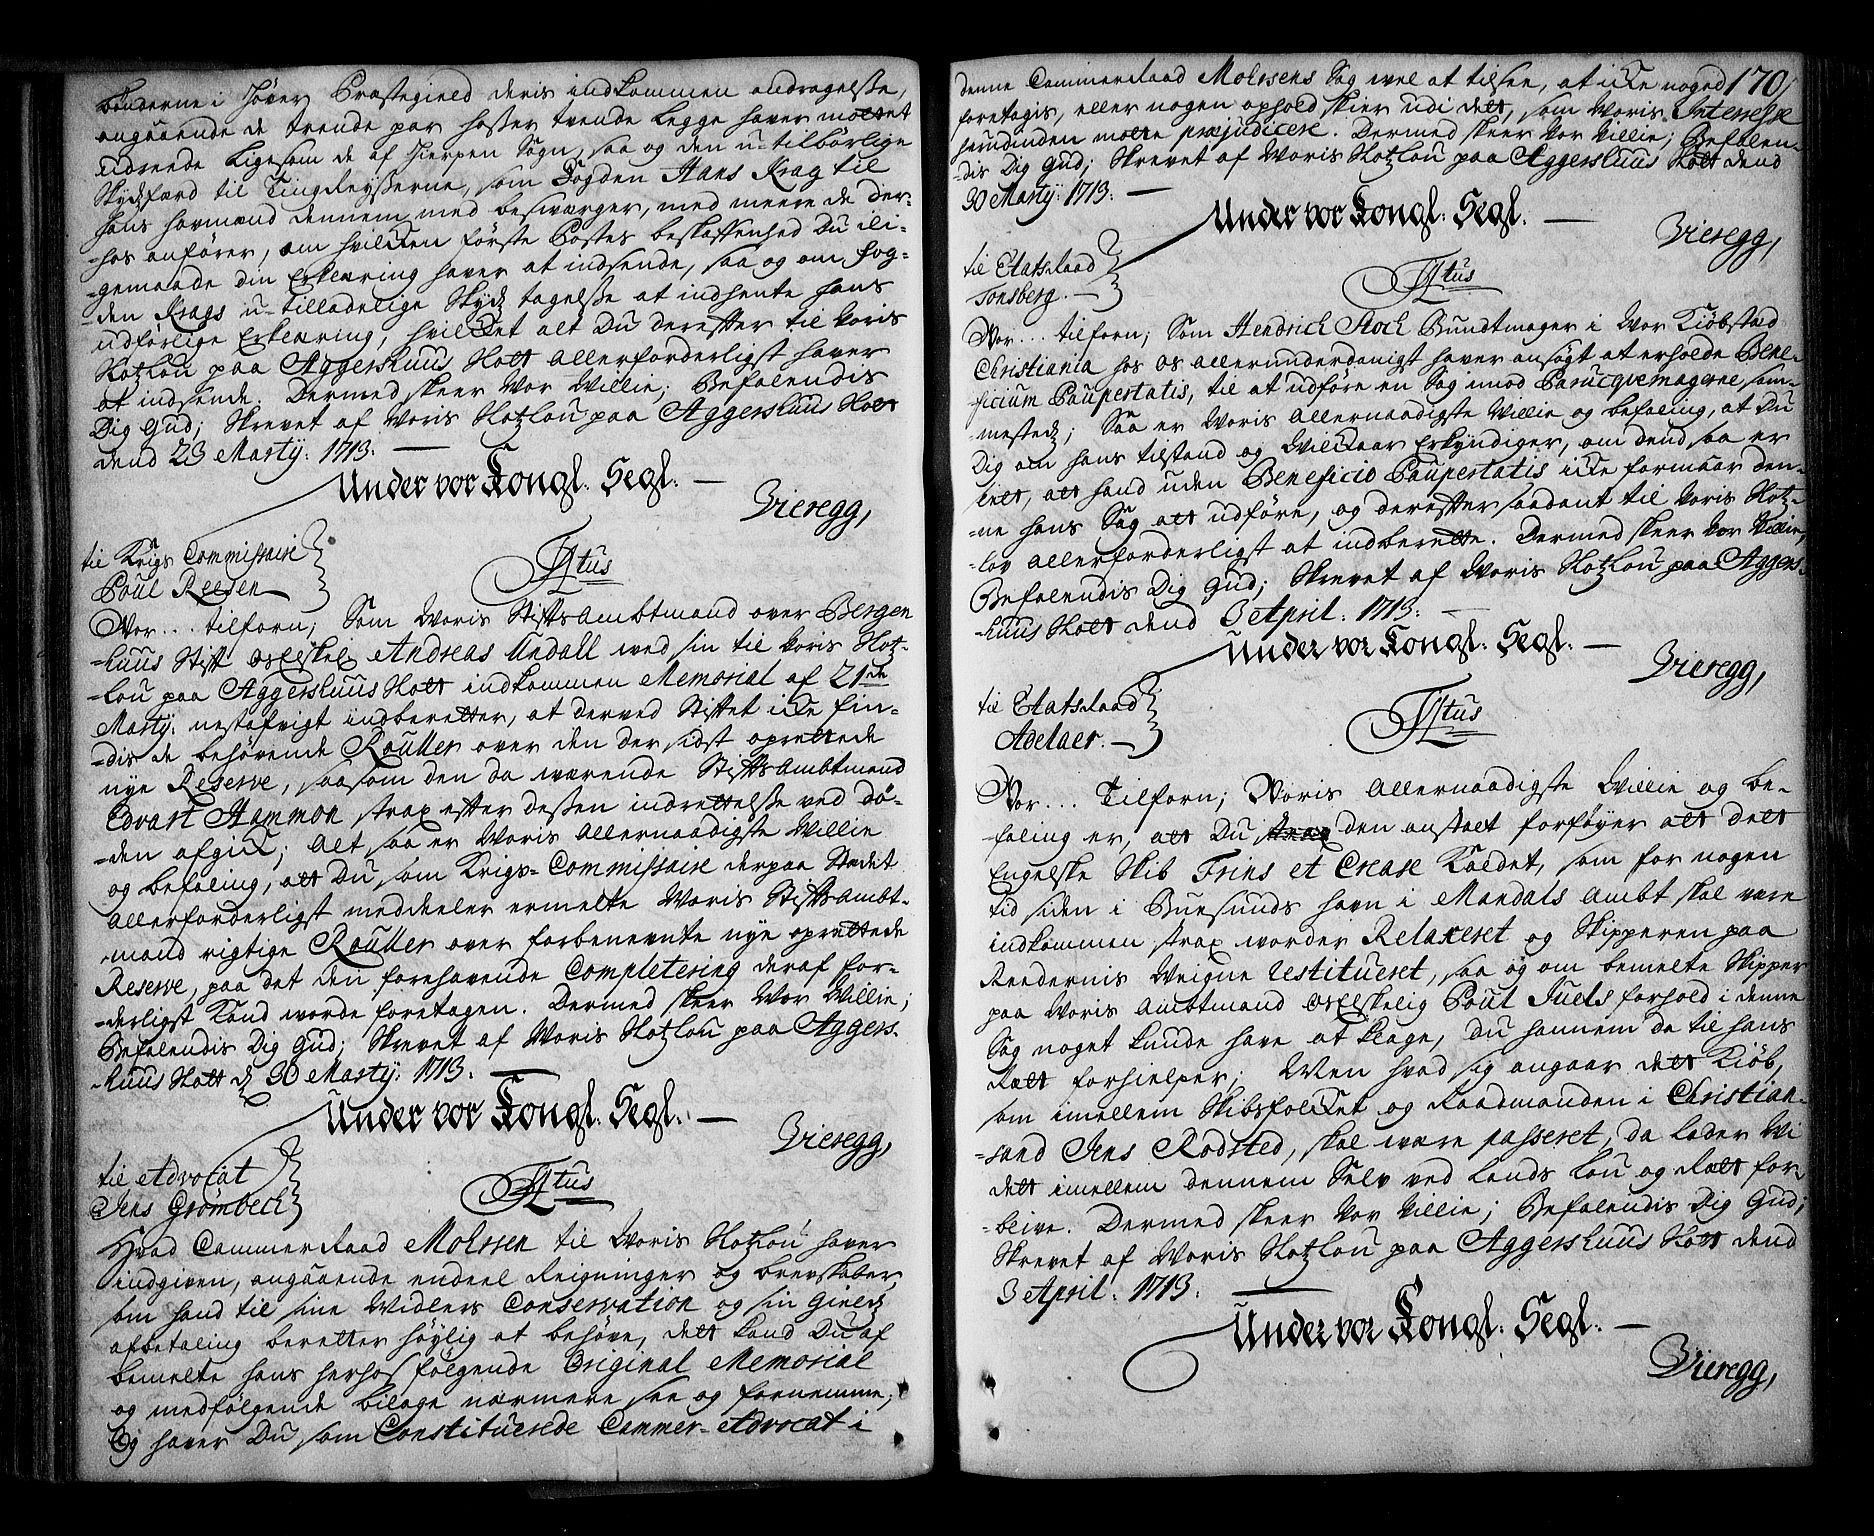 bønderne i Høver Præstegield deris indkommen andragelsse,
angaaende de trende par hosser tvende Legge haver maatet
udreede ligesom de af Hierpen Sogn, saa og den u-tilbörlige
Skydsfærd til TingReysserne, som Fogden Hans Krag til
hans formænd dennem med besværger, med meere de der-
-hos anförer, om hvilcken förste Postes beskaffenhed Du ili-
-gemaade din Erklæring haver at indsende, saa og om Fog-
-den Krags u-tilladelige Skyds tagelsse at indhente hans
udförlige Erklæring, hvilcket alt Du derefter til Voris
SlotzLou paa Aggershuus Slott allerforderligst haver
at indsende. Dermed skeer Vor Villie; Befalendis
Dig Gud; Skrevet af Voris SlotzLou paa Aggershuus Slott
dend 23 Martÿ: 1713.
Under vor Kongl: Segl.
Vieregg,
til Krigs Commissaire
Poul Reesen
Ttus
Vor... tilforn; Som Voris StiftsAmbtmand over Bergen
-huus Stift Os Elskel Andreas Undall med sin til Voris Slotz-
-Lou paa Aggershuus Slott indkommen Memorial af 21de
Martÿ: nestafvigt indberetter, at derved Stiftet icke fin-
-dis de behövende Rouller over den der sidst oprettede
nye Reserve, saasom den da værende StiftsAmbtmand
Edvart Hammon strax efter dessen indrettelsse ved dö-
-den afgick; Alt saa er Voris allernaadigste Villie
og befaling, att Du som Krigs-Commissaire derpaa Stædet
allerforderligst meddeeler ermelte Voris StiftsAmbt-
mand rigtige Rouller over forbenevnte nye oprettede
Reserve, paa det den forehavende Completering deraf for-
-derligst Kand worde foretagen. Dermed skeer Vor Villie;
Befalendis Dig Gud; Skrevet af Voris SlotzLou paa Aggers-
-huus Slott d 30 Martÿ: 1713.
Under vor Kongl: Segl.
Vieregg,
til Advocat
Jens Grömbech
Ttus
Hvad Cammer Raad Molssen til Voris SlotzLou haver
indgiven, angaaende endeel Reigninger og brevskaber,
som hand til sine Widlers Conservation og sin Gields
afbetaling beretter höylig at behöve, dett Kand Du af
bemelte hans herhos fölgende Original Memorial
og medfölgende bilage nærmere see og fornemme;
Og haver Du som Constituerede Cammer-Advocat i
170
denne CammerRaad Molssens Sag vel at tilsee, at icke noged
foretagis, eller nogen ophold skier udi dett, som Voris Interesse
herudinden motte præjudicere. Dermed skeer Vor Villie; Befalen-
-dis Dig Gud; Skrevet af Voris SlotzLou paa Aggershuus Slott dend
30 Martÿ: 1713.
Under vor Kongl: Segl.
Vieregg,
til EtatsRaad
Tonsberg.
Ttus
Vor... tilforn; Som Hendrich Stoch Bundtmager i Vor Kiöbstæd
Christiania hos os allerunderdanigst haver ansögt at erholde Bene-
-ficium Paupertatis, til at udföre en Sag imod Parucqvemagerne sam-
-mesteds; Saa er Voris allernaadigste Villie og befaling, at Du
Dig om hans tilstand og Vilckaar Erkyndiger, om dend saa er
ret, att hand uden Beneficio Paupertatis icke formaar den-
-ne hans Sag att udföre, og derefter saadant til Voris Slotz-
-lov allerforderligst at indberette. Dermed skeer Vor Villie,
Befalendis Dig Gud; Skrevet af Voris SlotzLou paa Aggers-
-huus Slott dend 3 April: 1713:
Under vor Kongl: Segl.
Vieregg,
til EtatsRaad
Adelaer.
Ttus
Vor... Tilforn; Voris allernaadigste Villie og be-
-faling er, att Du strax den anstalt forföyer att dett
Engelske Skib Frins et Crease Kaldet, som for nogen
tid siden i Buesunds havn i Mandals Ambt skal være
indkommen strax worder Relaxeret og Skipperen paa
Reedernis Veigne restitueret, saa og om bemelte Skipper
paa Voris Ambtmand OsElskelig Poul Juels forhold i denne
Sag noget Kunde have at klage, Du hannem da til hans
Rætt forhielper; Men hvad sig angaar dett Kiöb,
som imellem Skibsfolcket og Raadmanden i Christian-
-sand Jens Rodsted, skal være passeret, da lader Wi
dett imellem dennem Selv ved Lands Lou og Rætt for-
-blive. Dermed skeer Vor Villie; Befalendis Dig Gud;
Skrevet af Voris SlotzLou paa Aggershuus Slott dend
3 April: 1713.
Under vor Kongl: Segl.
Vieregg,